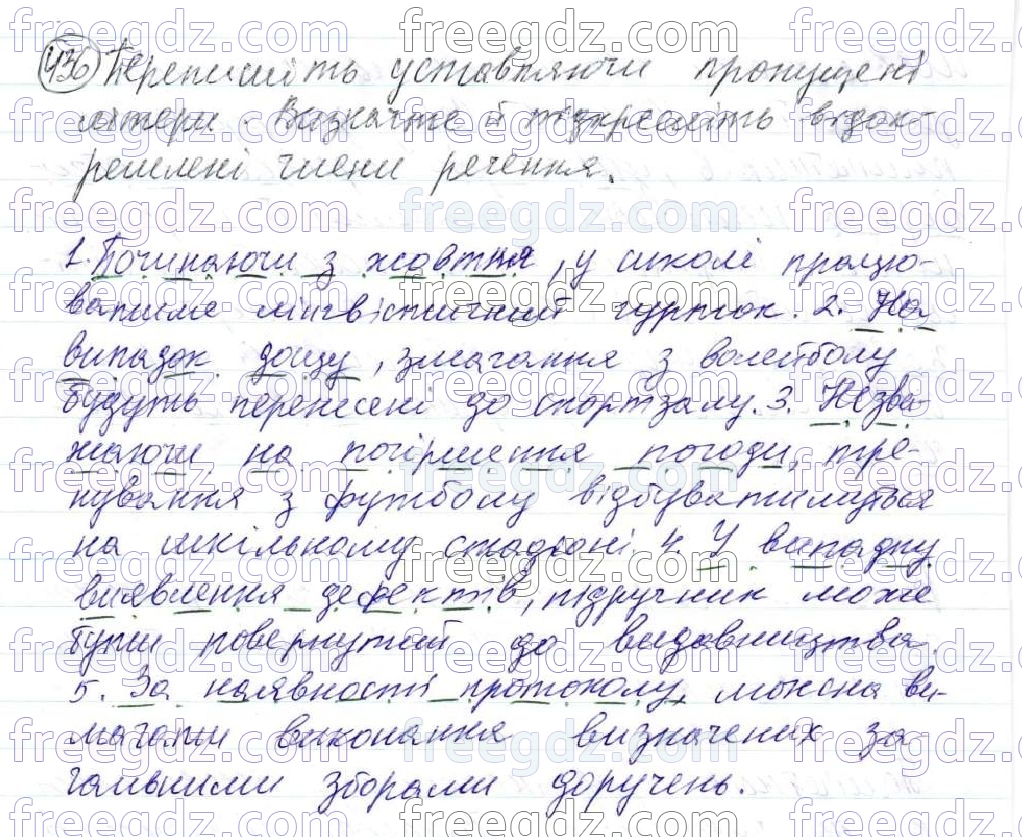 436 Перепишіть уставляючи пропущені
літери. Визначте й підкресліть відок-
ремлені члени речення.
1. Починаючи з жовтня, у школі працю-
ватиме лінгвістичний гурток. 2. На
випадок дощу, змагання з волейболу
будуть перенесені до спортзалу. 3. Незва-
жаючи на погіршення погоди, тре-
нування з футболу відбуватимуться
на шкільному стадіоні. 4. У випадку
виявлення дефектів, підручник може
бути повернутий до видавництва.
5. За наявності протоколу, можна ви-
магати виконання визначених за-
гальними зборами доручень.
freegdz.com